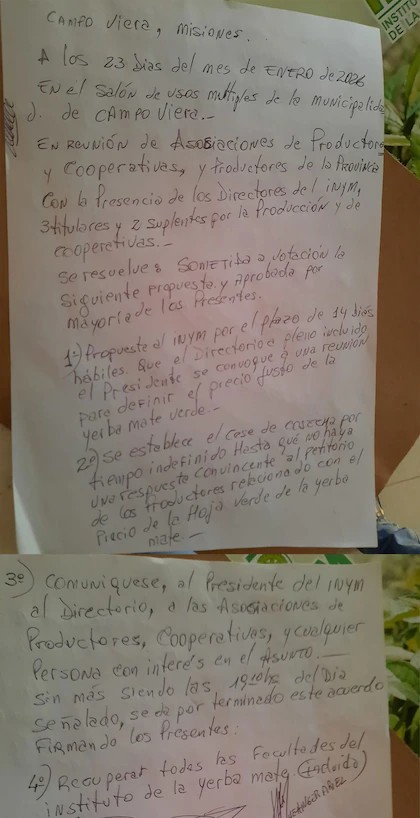 CAMPO Viera, Misiones.
A los 23 Dias del mes de ENERO de 2026
EN el Salón de usos multiples de la municipalida
d. de CAMPO Viera.-
EN REUNIÓN de Asosiaciones de Productores
y Cooperativas, y Productores de la Provincia
Con la Presencia de los Directores del INYM,
3 titulares y 2 suplentes por la Producción y de
cooperativas.-
se resuelve: SOMETIDA a votación la
siguiente propuesta y Aprobada por
mayoría de los Presentes.
1º) Propueste al INYM por el plazo de 14 días
hábiles. Que el Directorio e pleno incluido
el Presidente se convoque a una reunión
para definir el precio justo de la
yerba mate verde.-
2º) se establece el Cese de cosecha por
tiempo indefinido Hasta qué no haya
una respuesta convincente al petitorio
de los Productores relacionado con el
Precio de la Hoja verde de la yerba
mate.-
3º) Comuniquese, al Presidente del INYM
al Directorio, a las Asociaciones de
Productores, Cooperativas, y cualquier
Persona con interés en el ASUNTO.
Sin más siendo las 19:10hs del Día
señalado, se da por terminado este acuerdo
FIRMANDO los Presentes:
4º) Recuperar todas las Facultades del
instituto de la yerba mate (
INSTITU
DE LA